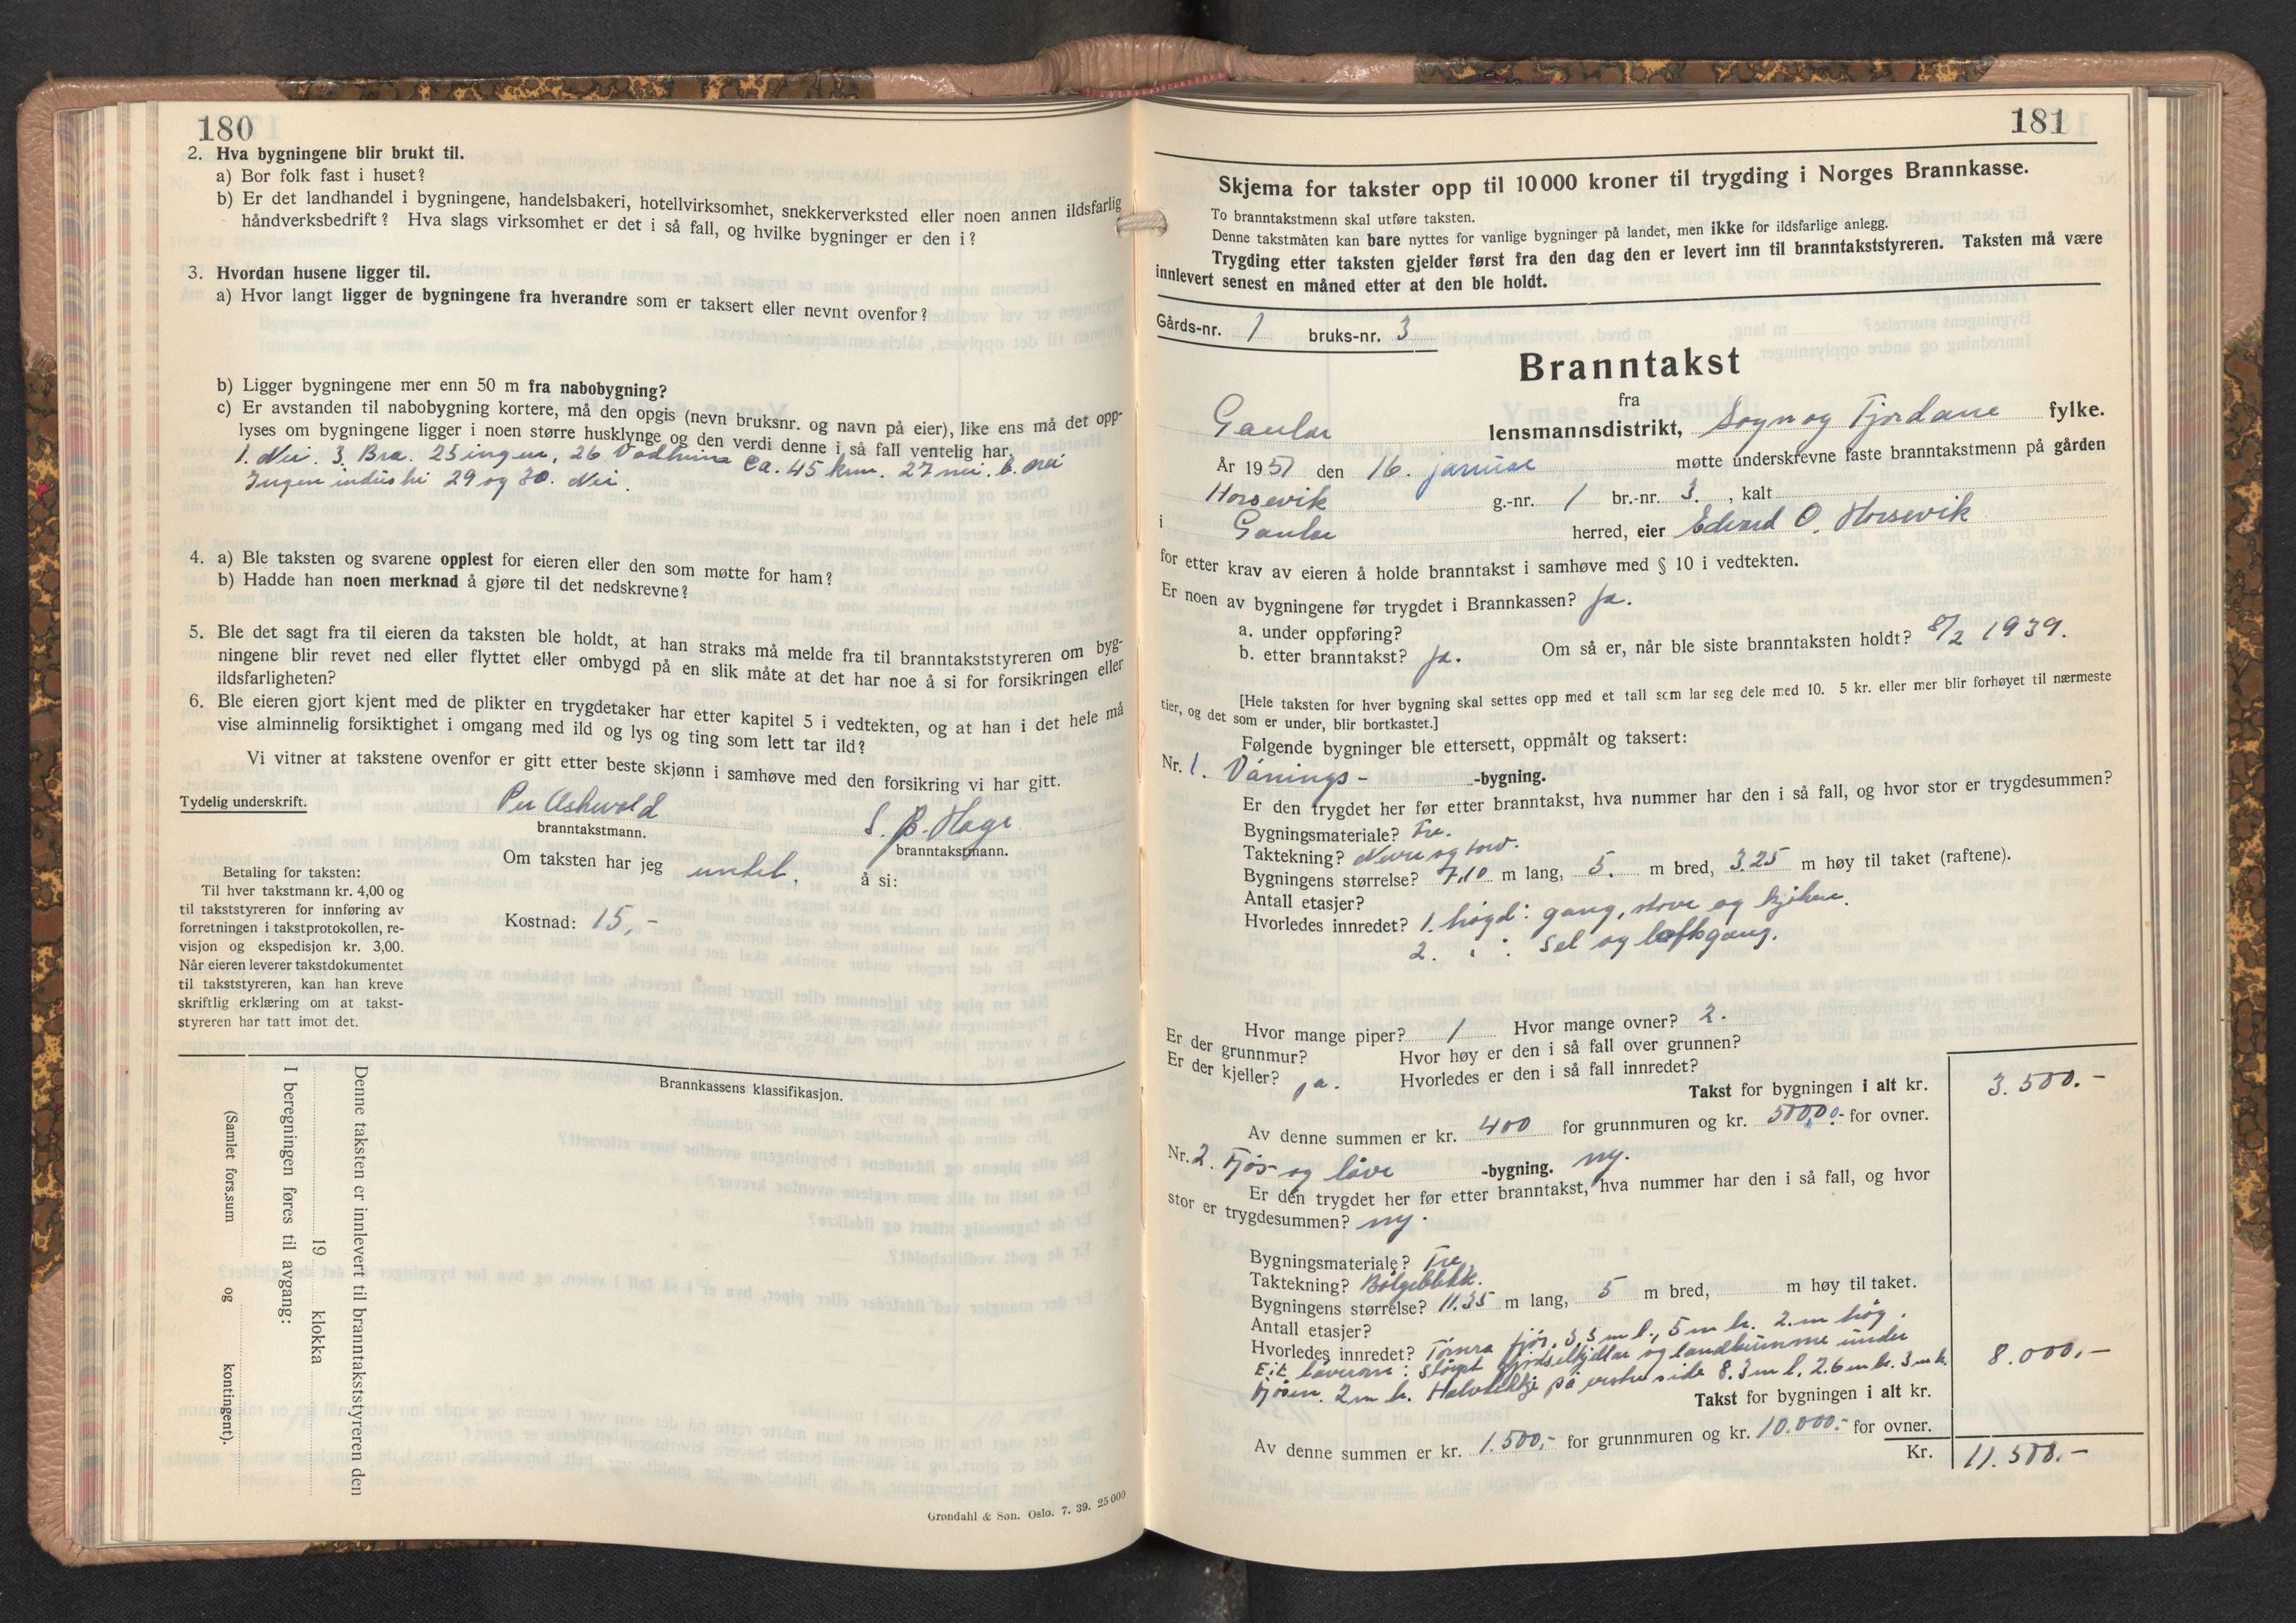 180
2. Hva bygningene blir brukt til.
a) Bor folk fast i huset?
b) Er det landhandel i bygningene, handelsbakeri, hotellvirksomhet, snekkerverksted eller noen annen ildsfarlig
håndverksbedrift? Hva slags virksomhet er det i så fall, og hvilke bygninger er den i?
3. Hvordan husene ligger til.
a) Hvor langt ligger de bygningene fra hverandre som er taksert eller nevnt ovenfor?
b) Ligger bygningene mer enn 50 m fra nabobygning?
c) Er avstanden til nabobygning kortere, må den opgis (nevn bruksnr. og navn på eier), like ens må det opp-
lyses om bygningene ligger i noen større husklynge og den verdi denne i så fall ventelig har.
1. Nei. 3. Bra. 25 ingen, 26 Ca. 45 km. 27 nei. 6. nei
Ingen industri 29 og 30. Nei.
4. a) Ble taksten og svarene opplest for eieren eller den som møtte for ham?
b) Hadde han noen merknad å gjøre til det nedskrevne?
5. Ble det sagt fra til eieren da taksten ble holdt, at han straks må melde fra til branntakststyreren om byg-
ningene blir revet ned eller flyttet eller ombygd på en slik måte at det har noe å si for forsikringen eller
ildsfarligheten?
6. Ble eieren gjort kjent med de plikter en trygdetaker har etter kapitel 5 i vedtekten, og at han i det hele må
vise alminnelig forsiktighet i omgang med ild og lys og ting som lett tar ild?
Vi vitner at takstene ovenfor er gitt etter beste skjønn i samhøve med den forsikring vi har gitt.
Tydelig underskrift.
Per Askvold
S. B. Hage
branntakstmann.
branntakstmann.
Om taksten har jeg intet, å si:
Kostnad: 15,-
Betaling for taksten:
Til hver takstmann kr. 4,00 og
til takststyreren for innføring av
forretningen i takstprotokollen, re-
visjon og ekspedisjon kr. 3,00.
Når eieren leverer takstdokumentet
til takststyreren, kan han kreve
skriftlig erklæring om at takst-
styreren har tatt imot det.
Brannkassens klassifikasjon.
Denne taksten er innlevert til branntakststyreren den
19 klokka
I beregningen føres til avgang:
(Samlet fors.sum og kontingent).
Grøndahl & Søn. Oslo. 7. 39. 25 000
181
Skjema for takster opp til 10 000 kroner til trygding i Norges Brannkasse.
To branntakstmenn skal utføre taksten.
Denne takstmåten kan bare nyttes for vanlige bygninger på landet, men ikke for ildsfarlige anlegg.
Trygding etter taksten gjelder først fra den dag den er levert inn til branntakststyreren. Taksten må være
innlevert senest en måned etter at den ble holdt.
Gårds-nr. 1 bruks-nr. 3
Branntakst
fra
Gaular lensmannsdistrikt, Sogn og Fjordane fylke.
År 1951 den 16. januar møtte underskrevne faste branntakstmenn på gården
Horsevik g.-nr. 1 br.-nr. 3. , kalt
i Gaular herred, eier Edvard O. Horsevik
for etter krav av eieren å holde branntakst i samhøve med § 10 i vedtekten.
Er noen av bygningene før trygdet i Brannkassen? Ja.
a. under oppføring?
b. etter branntakst? Ja. Om så er, når ble siste branntaksten holdt? 8/2 1939.
[Hele taksten for hver bygning skal settes opp med et tall som lar seg dele med 10. 5 kr. eller mer blir forhøyet til nærmeste
tier, og det som er under, blir bortkastet.]
Følgende bygninger ble ettersett, oppmålt og taksert:
Nr. 1. Vånings- -bygning.
Er den trygdet her før etter branntakst, hva nummer har den i så fall, og hvor stor er trygdesummen?
Bygningsmateriale? Tre.
Taktekning? Never og torv.
Bygningens størrelse? 7,10 m lang, 5. m bred, 3.25 m høy til taket (raftene).
Antall etasjer?
Hvorledes innredet? 1. høgd: gang, stove og kjøken.
2. " : Sel og loftsgang.
Hvor mange piper? 1 Hvor mange ovner? 2.
Er der grunnmur? Hvor høy er den i så fall over grunnen?
Er der kjeller? ja. Hvorledes er den i så fall innredet?
Takst for bygningen i alt kr. 3.500.-
Av denne summen er kr. 400 for grunnmuren og kr. for ovner.
Nr. 2. Fjøs og løve -bygning. ny.
Er den trygdet her før etter branntakst, hva nummer har den i så fall, og hvor
stor er trygdesummen? ny.
Bygningsmateriale? Tre
Taktekning? Bølgeblekk.
Bygningens størrelse? 11.35 m lang, 5 m bred, m høy til taket.
Antall etasjer?
Hvorledes innredet? Tømra fjøs, 3,5 m l., 5 m br. 2. m høg.
Eit løverom: Støypt gjødselkjellar og landbrunme under
fjøsen. 2 m h. på side 8.3 m l. 2.6 m br. 3 m h. 8.000,-
Takst for bygningen i alt kr.
Av denne summen er kr. 1.500,- for grunnmuren og kr. 10.000.- for ovner.
Kr. 11.500.-